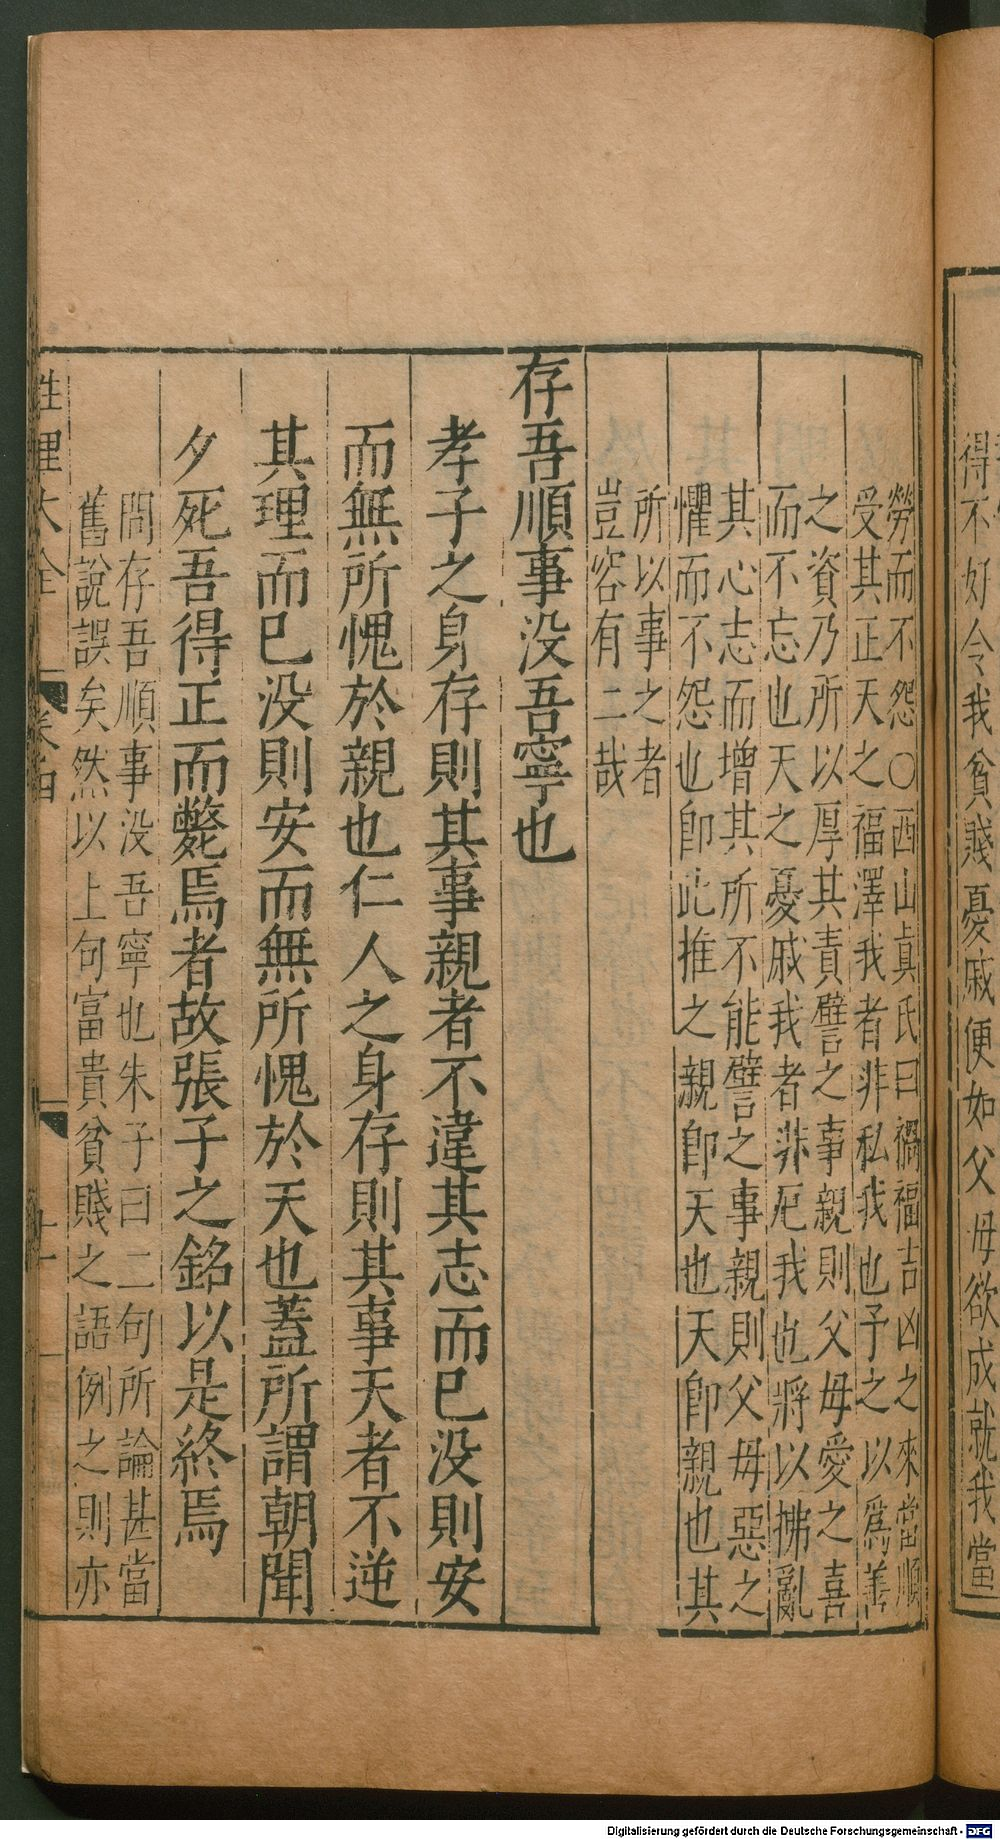 得不好令我貧賤憂戚便如父母欲成就我當
勞而不怨○西山眞氏曰禍福吉凶之來當順
受其正天之福澤我者非私我也予之以爲善
之資乃所以厚其責譬之事親則父母愛之喜
而不忘也天之憂戚我者非厄我也將以拂亂
其心志而增其所不能譬之事親則父母惡之
懼而不怨也卽此推之親卽天也天卽親也其
所以事之者
豈容有二哉
存吾順事没吾寧也
孝子之身存則其事親者不違其志而已没則安
而無所愧於親也仁人之身存則其事天者不逆
其理而已没則安而無所愧於天也蓋所謂朝聞
夕死吾得正而斃焉者故張子之銘以是終焉
問存吾順事没吾寧也朱子曰二句所論甚當
舊說誤矣然以上句富貴貧賤之語例之則亦
性理大全 卷四 十一
Digitalisierung gefördert durch die Deutsche Forschungsgemeinschaft - DFG